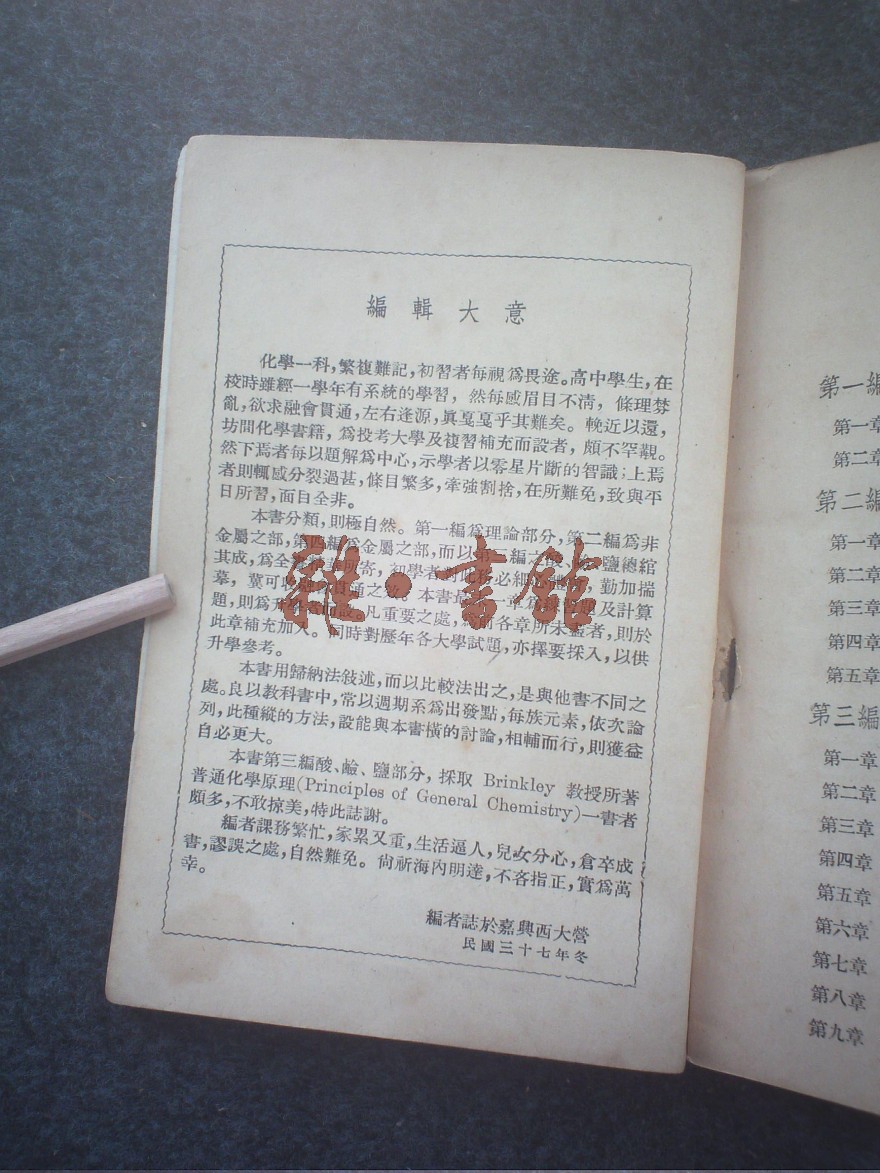 編輯大意
化學一科，繁複難記，初習者每視爲畏途。高中學生，在
校時雖經一學年有系統的學習，然每感眉目不清，條理棼
亂，欲求融會貫通，左右逢源，眞戛戛乎其難矣。輓近以還，
坊間化學書籍，爲投考大學及複習補充而設者，頗不罕覯。
然下焉者每以題解爲中心，示學者以零星片斷的智識；上焉
者則輒感分裂過甚，條目繁多，牽強割捨，在所難免，致與平
日所習，面目全非。
本書分類，則極自然。第一編爲理論部分，第二編爲非
金屬之部，第四編爲金屬之部，而以第三編之酸、鹼、鹽總綰
其成，爲全書精華所寄，初學者對此務必細心體會，勤加揣
摹，冀可收融會貫通之效。本書最後一章爲問題及計算
題，則爲升學者而設。凡重要之處，爲前各章所未盡者，則於
此章補充加入。同時對歷年各大學試題，亦擇要採入，以供
升學參考。
本書用歸納法敍述，而以比較法出之，是與他書不同之
處。良以教科書中，常以週期系爲出發點，每族元素，依次論
列，此種縱的方法，設能與本書橫的討論，相輔而行，則獲益
自必更大。
本書第三編酸、鹼、鹽部分，採取 Brinkley 教授所著
普通化學原理(Principles of General Chemistry)一書者
頗多，不敢掠美，特此誌謝。
編者課務繁忙，家累又重，生活逼人，兒女分心，倉卒成
書，謬誤之處，自然難免。尙祈海內明達，不吝指正，實爲萬
幸。
編者誌於嘉興西大營
民國三十七年冬
雜·書館
第一編
第一章
第二章
第二編
第一章
第二章
第三章
第四章
第五章
第三編
第一章
第二章
第三章
第四章
第五章
第六章
第七章
第八章
第九章